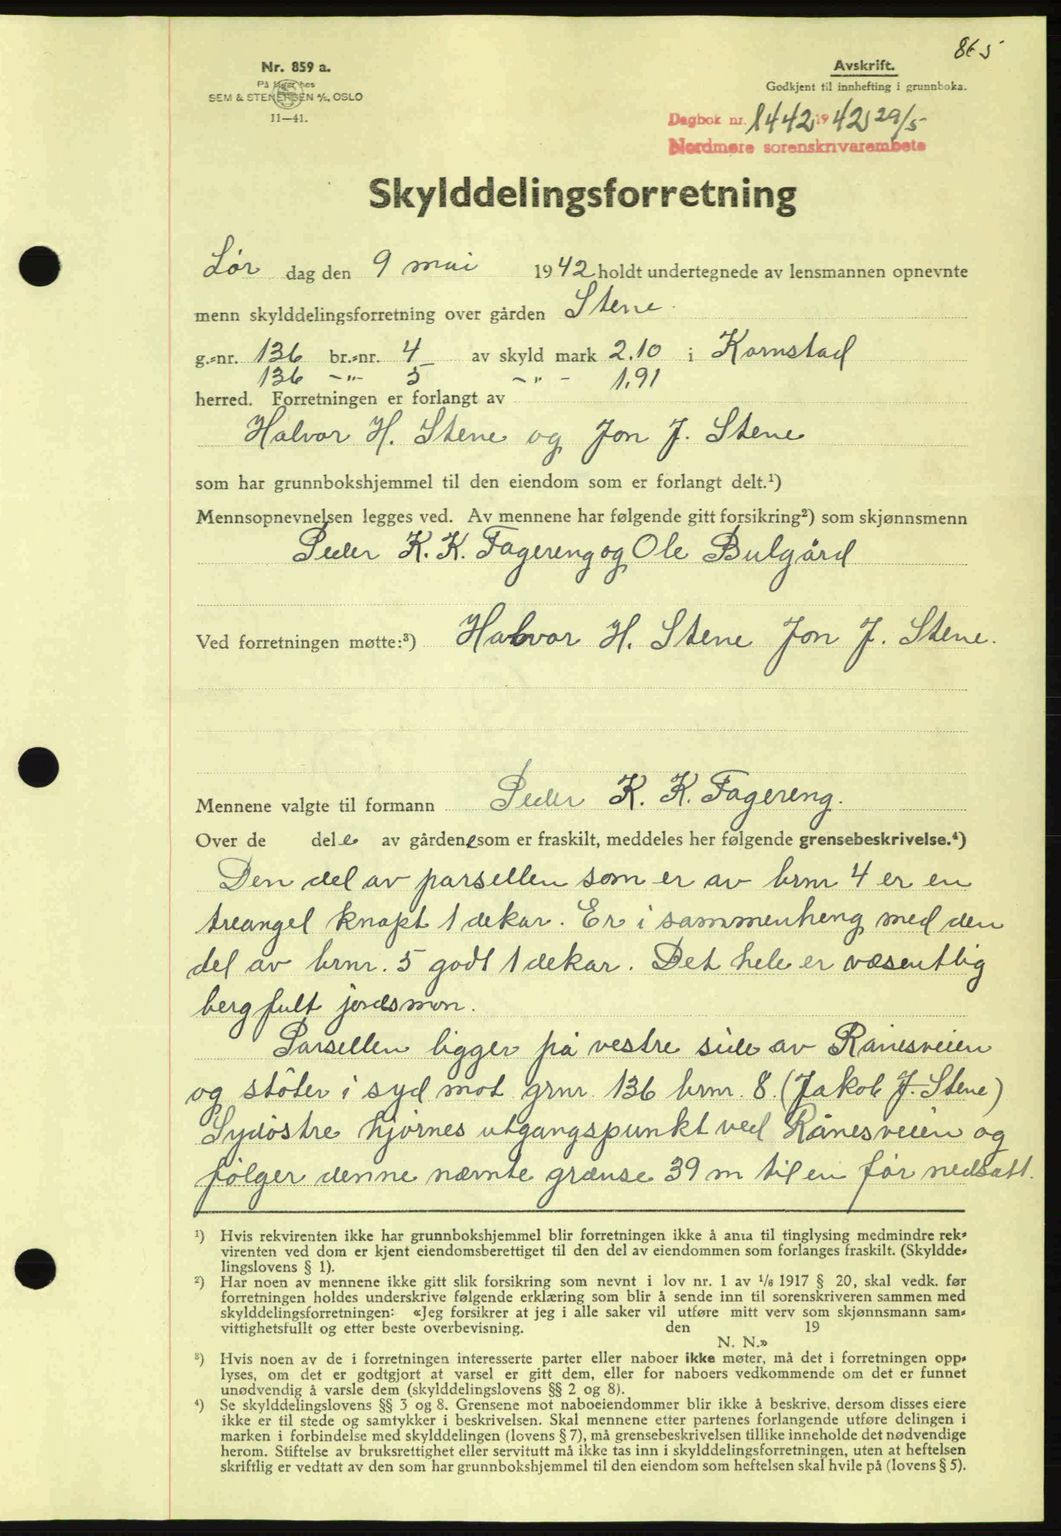 865
Nr. 859 a.
På lager hos
SEM & STENERSEN A/S, OSLO
11—41.
Avskrift.
Godkjent til innhefting i grunnboka.
Dagbok nr. 1442 1942 29/5
Nordmøre sorenskrivarembete
Skylddelingsforretning
Lør dag den 9 mai 1942 holdt undertegnede av lensmannen opnevnte
menn skylddelingsforretning over gården Stene.
g.-nr. 136 br.-nr. 4 av skyld mark 2.10 i Kornstad
136 -"- 5 -"- 1,91
herred. Forretningen er forlangt av
Halvor H. Stene og Jon J. Stene
som har grunnbokshjemmel til den eiendom som er forlangt delt.¹)
Mennsopnevnelsen legges ved. Av mennene har følgende gitt forsikring²) som skjønnsmenn
Peder K. K. Fagereng og Ole Bulgård
Ved forretningen møtte:³) Halvor H. Stene Jon J. Stene.
Mennene valgte til formann Peder K. K. Fagereng.
Over de dele av gårdene som er fraskilt, meddeles her følgende grensebeskrivelse.⁴)
Den del av parsellen som er av brnr 4 er en
treangel knapt 1 dekar. Er i sammenheng med den
del av brnr. 5 godt 1 dekar. Det hele er væsentlig
bergfult jordsmon.
Parsellen ligger på vestre side av Rånesveien
og støter i syd mot grnr. 136 brnr. 8. (Jakob J. Stene)
Sydøstre hjørnes utgangspunkt ved Rånesveien og
følger denne nævnte grænse 39 m til en før nedsatt.
¹) Hvis rekvirenten ikke har grunnbokshjemmel blir forretningen ikke å anta til tinglysing medmindre rek-
virenten ved dom er kjent eiendomsberettiget til den del av eiendommen som forlanges fraskilt. (Skyldde-
lingslovens § 1).
²) Har noen av mennene ikke gitt slik forsikring som nevnt i lov nr. 1 av 1/6 1917 § 20, skal vedk. før
forretningen holdes underskrive følgende erklæring som blir å sende inn til sorenskriveren sammen med
skylddelingsforretningen: «Jeg forsikrer at jeg i alle saker vil utføre mitt verv som skjønnsmann sam-
vittighetsfullt og etter beste overbevisning. den 19
N. N.»
³) Hvis noen av de i forretningen interesserte parter eller naboer ikke møter, må det i forretningen opp-
lyses, om det er godtgjort at varsel er gitt dem, eller for naboers vedkommende om det er funnet
unødvendig å varsle dem (skylddelingslovens §§ 2 og 8).
⁴) Se skylddelingslovens §§ 3 og 8. Grensene mot naboeiendommer blir ikke å beskrive, dersom disses eiere
ikke er til stede og samtykker i beskrivelsen. Skal mennene etter partenes forlangende utføre delingen i
marken i forbindelse med skylddelingen (lovens § 7), må grensebeskrivelsen tillike inneholde det nødvendige
herom. Stiftelse av bruksrettighet eller servitutt må ikke tas inn i skylddelingsforretningen, uten at heftelsen
skriftlig er vedtatt av den som har grunnbokshjemmel til den eiendom som heftelsen skal hvile på (lovens § 5).